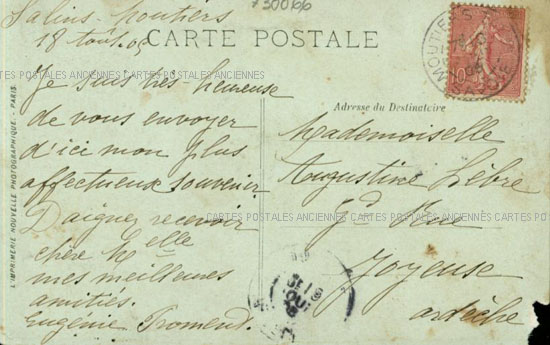 730066
Salins-Moutiers
18 Août 05
CARTE POSTALE
CARTES POSTALES ANCIENNES CARTES POSTALES ANCIENNES CARTES POSTALES ANCIENNES
Je suis très heureuse
de vous envoyer
d'ici mon plus
affectueux souvenir
Daignez recevoir
chère Melle
mes meilleures
amitiés.
Eugénie Froment.
Adresse du Destinataire
Mademoiselle
Augustine Lèbre
Gd Rue
Joyeuse
ardèche
CARTES POSTALES ANCIENNES CARTES POSTALES ANCIENNES CARTES POSTALES
L'IMPRIMERIE NOUVELLE PHOTOGRAPHIQUE - PARIS
MOUTIERS
SAVOIE
10